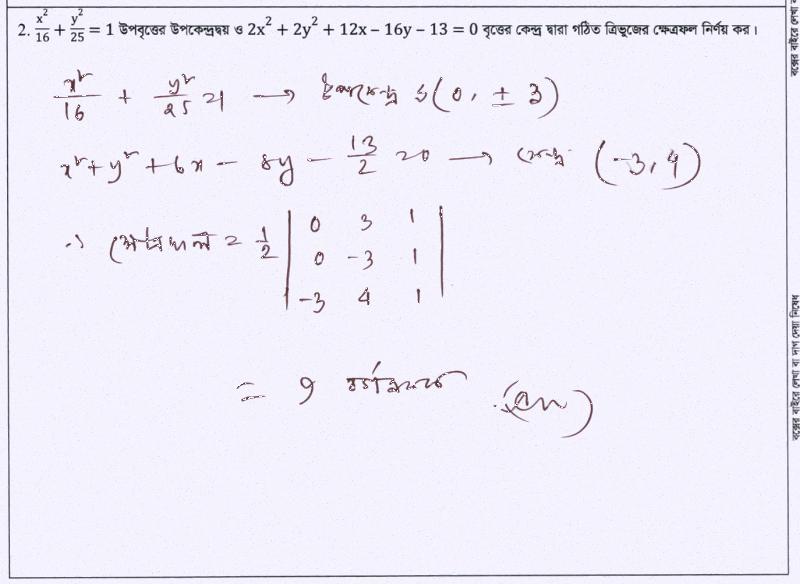 2. x²/16 + y²/25 = 1 উপবৃত্তের উপকেন্দ্রদ্বয় ও 2x² + 2y² + 12x − 16y − 13 = 0 বৃত্তের কেন্দ্র দ্বারা গঠিত ত্রিভুজের ক্ষেত্রফল নির্ণয় কর।
x²/16 + y²/25 = 1 → উপকেন্দ্র (0, ± 3)
x² + y² + 6x − 8y − 13/2 = 0 → কেন্দ্র (−3, 4)
∴ ক্ষেত্রফল = 1/2 | 0 3 1
0 −3 1
−3 4 1 |
= 9 বর্গএকক (Ans)
বক্সের বাইরে লেখা বা দাগ দেয়া নিষেধ